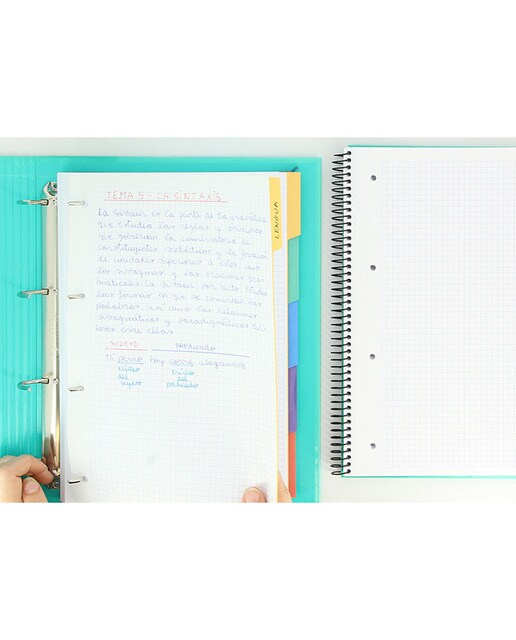 TEMA 5.- LA SINTAXIS
LENGUA
La sintaxis es la parte de la gramática
que estudia las reglas y principios
que gobiernan la combinatoria de
constituyentes sintácticos y la formación
de unidades superiores a estos, como
los sintagmas y las oraciones gra-
maticales. La sintaxis, por tanto, estudia
las formas en que se combinan las
palabras, así como las relaciones
sintagmáticas y paradigmáticas
entre ellas.
SUJETO PREDICADO
Mi perro hoy corre alegremente
Núcleo Núcleo
del del
sujeto predicado